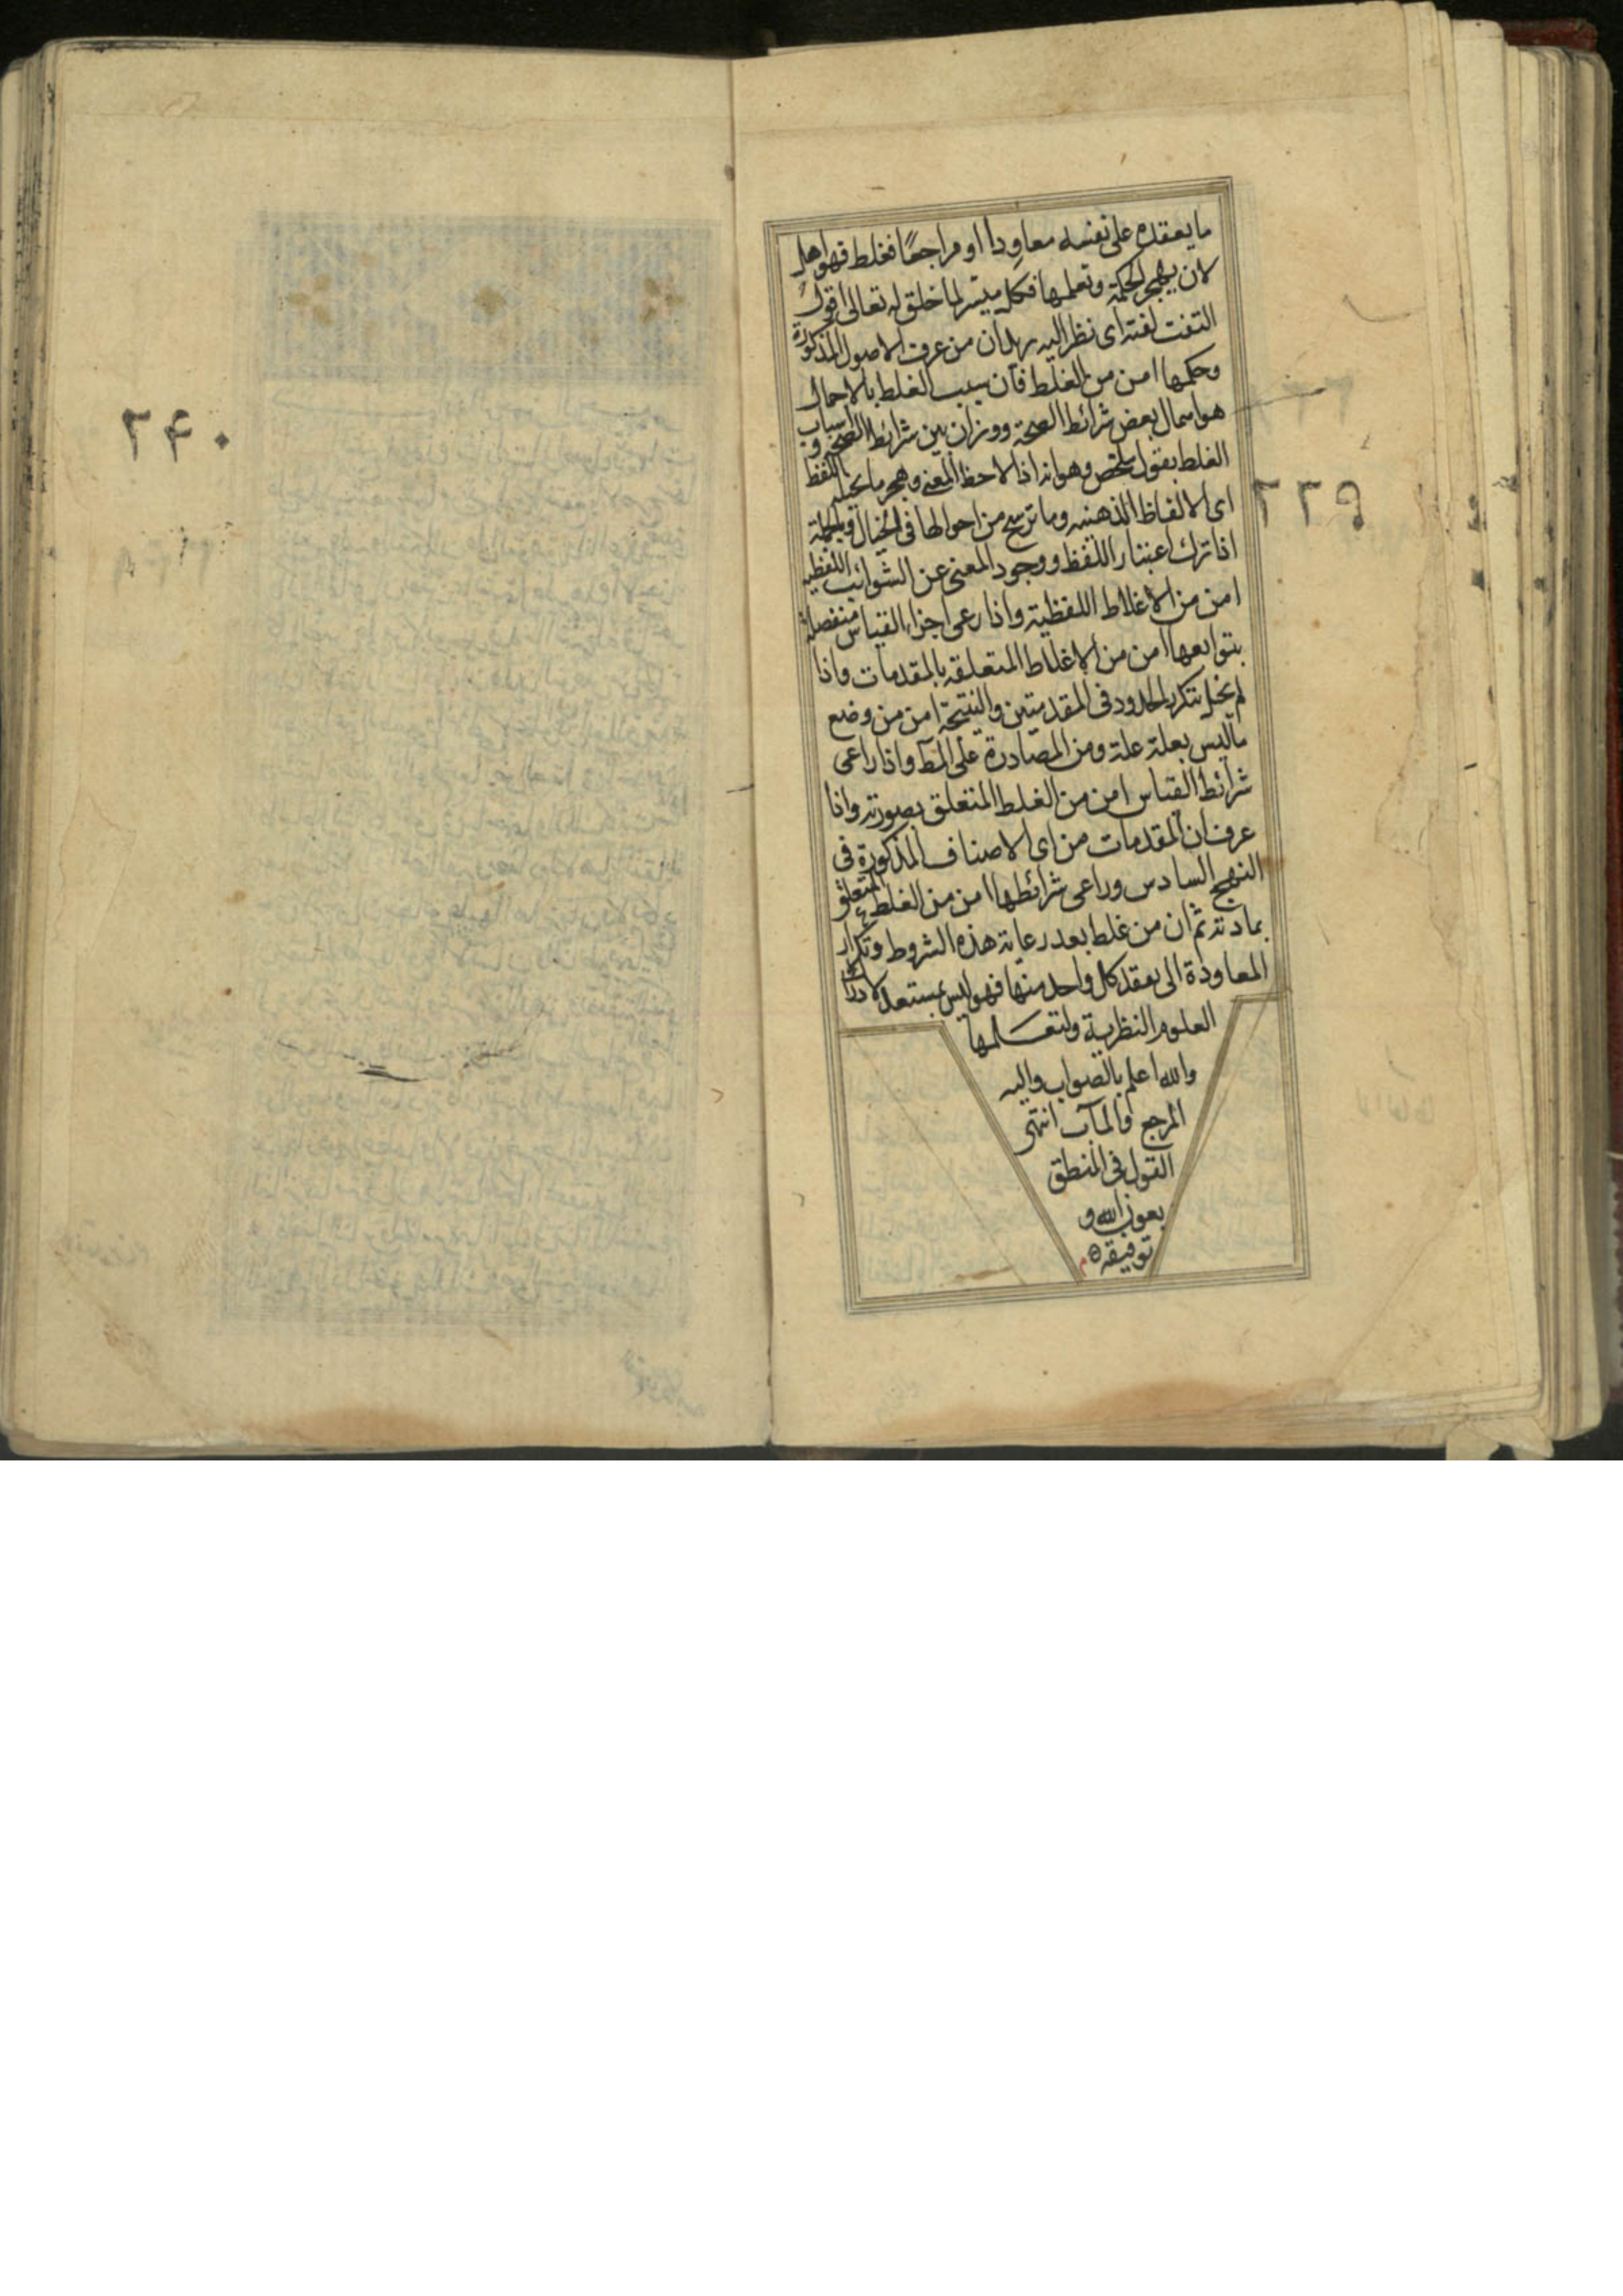 ما يعقده على نفسه معاودا او مراجعًا فغلط فهو اهل
لان يهجر الحكمة وتعلمها فكل ميسر لما خلق له تعالى اقول
التفت لفته اى نظر اليه يريد ان من عرف الاصول المذكورة
وحكمها امن من الغلط فان سبب الغلط بالاجمال
هو اهمال بعض شرائط الصحة ووزان بين شرائط الصحة و اسباب
الغلط بقول ملخص وهو انه اذا لاحظ المعنى وهجر ما يخيله اللفظ
اى الالفاظ الذهنيه وما ترسخ من احوالها فى الخيال وبالجملة
اذا ترك اعتبار اللفظ ووجود المعنى عن الشوائب اللفظيه
امن من الاغلاط اللفظية واذا رعى اجزاء القياس منفصلة
بتوابعها امن من الاغلاط المتعلقه بالمقدمات واذا
لم يخل بتكرير الحدود فى المقدمتين والنتيجة امن من وضع
ماليس بعلة علة ومن المصادرة على المط واذا راعى
شرائط القياس امن من الغلط المتعلق بصورته واذا
عرف ان المقدمات من اى الاصناف المذكورة فى
النهج السادس وراعى شرائطها امن من الغلط المتعلق
بمادته ثم ان من غلط بعد رعاية هذه الشروط وتكرار
المعاودة الى بعقد كل واحد منها فهو ليس بمستعد لادراك
العلوم النظرية ولتعلمها
والله اعلم بالصواب واليه
المرجع والمآب انتهى
القول فى المنطق
بعون الله و
توفيقه ه م
٢٣٩
٢٤٠